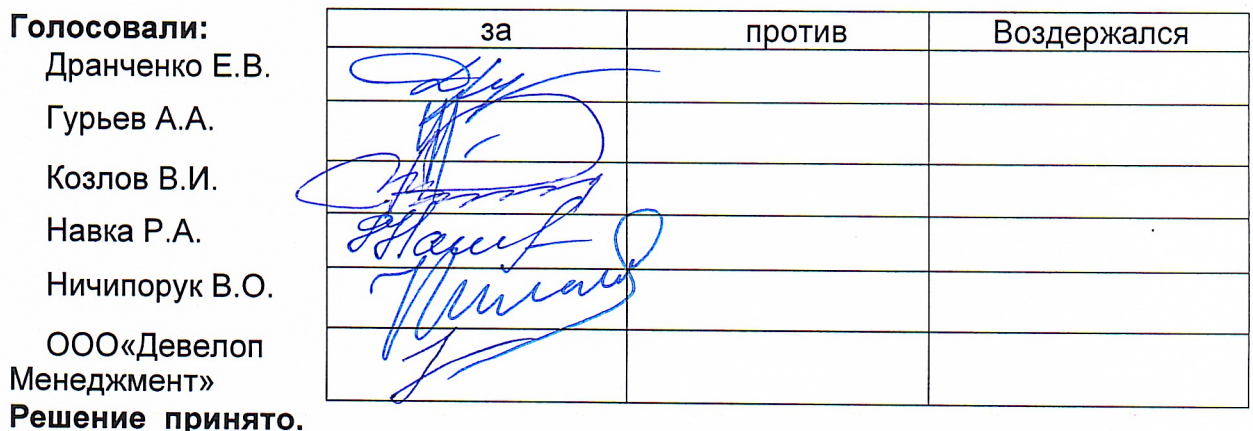 Голосовали: за против Воздержался
Дранченко Е.В.
Гурьев А.А.
Козлов В.И.
Навка Р.А.
Ничипорук В.О.
ООО«Девелоп
Менеджмент»
Решение принято.